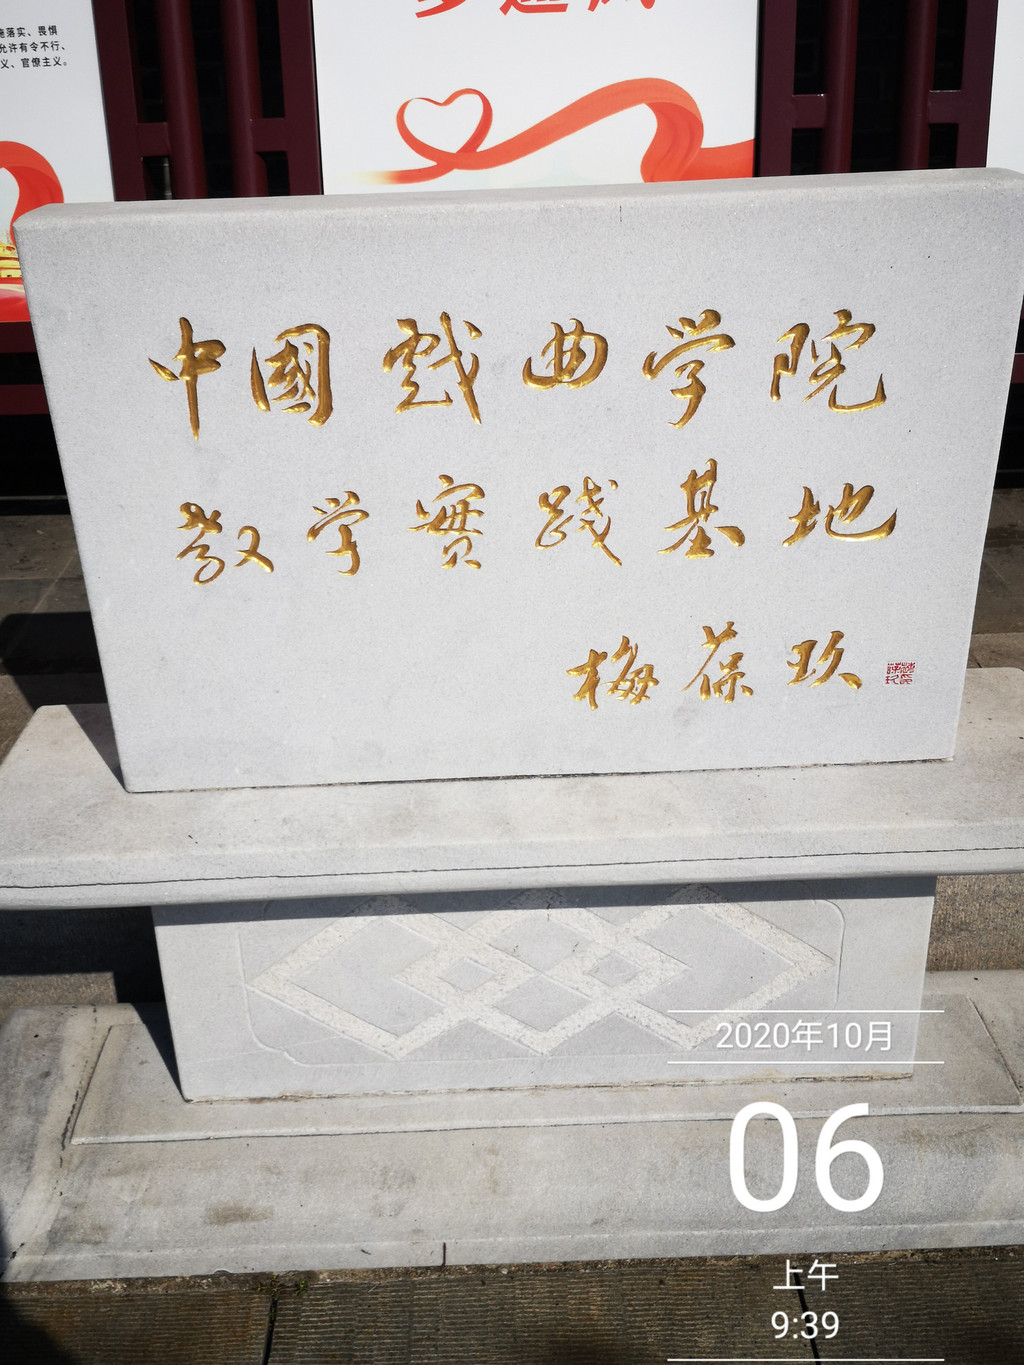 施落实、畏惧
允许有令不行、
义、官僚主义。
中國戏曲学院
教学實践基地
梅葆玖
2020年10月
06
上午
9:39